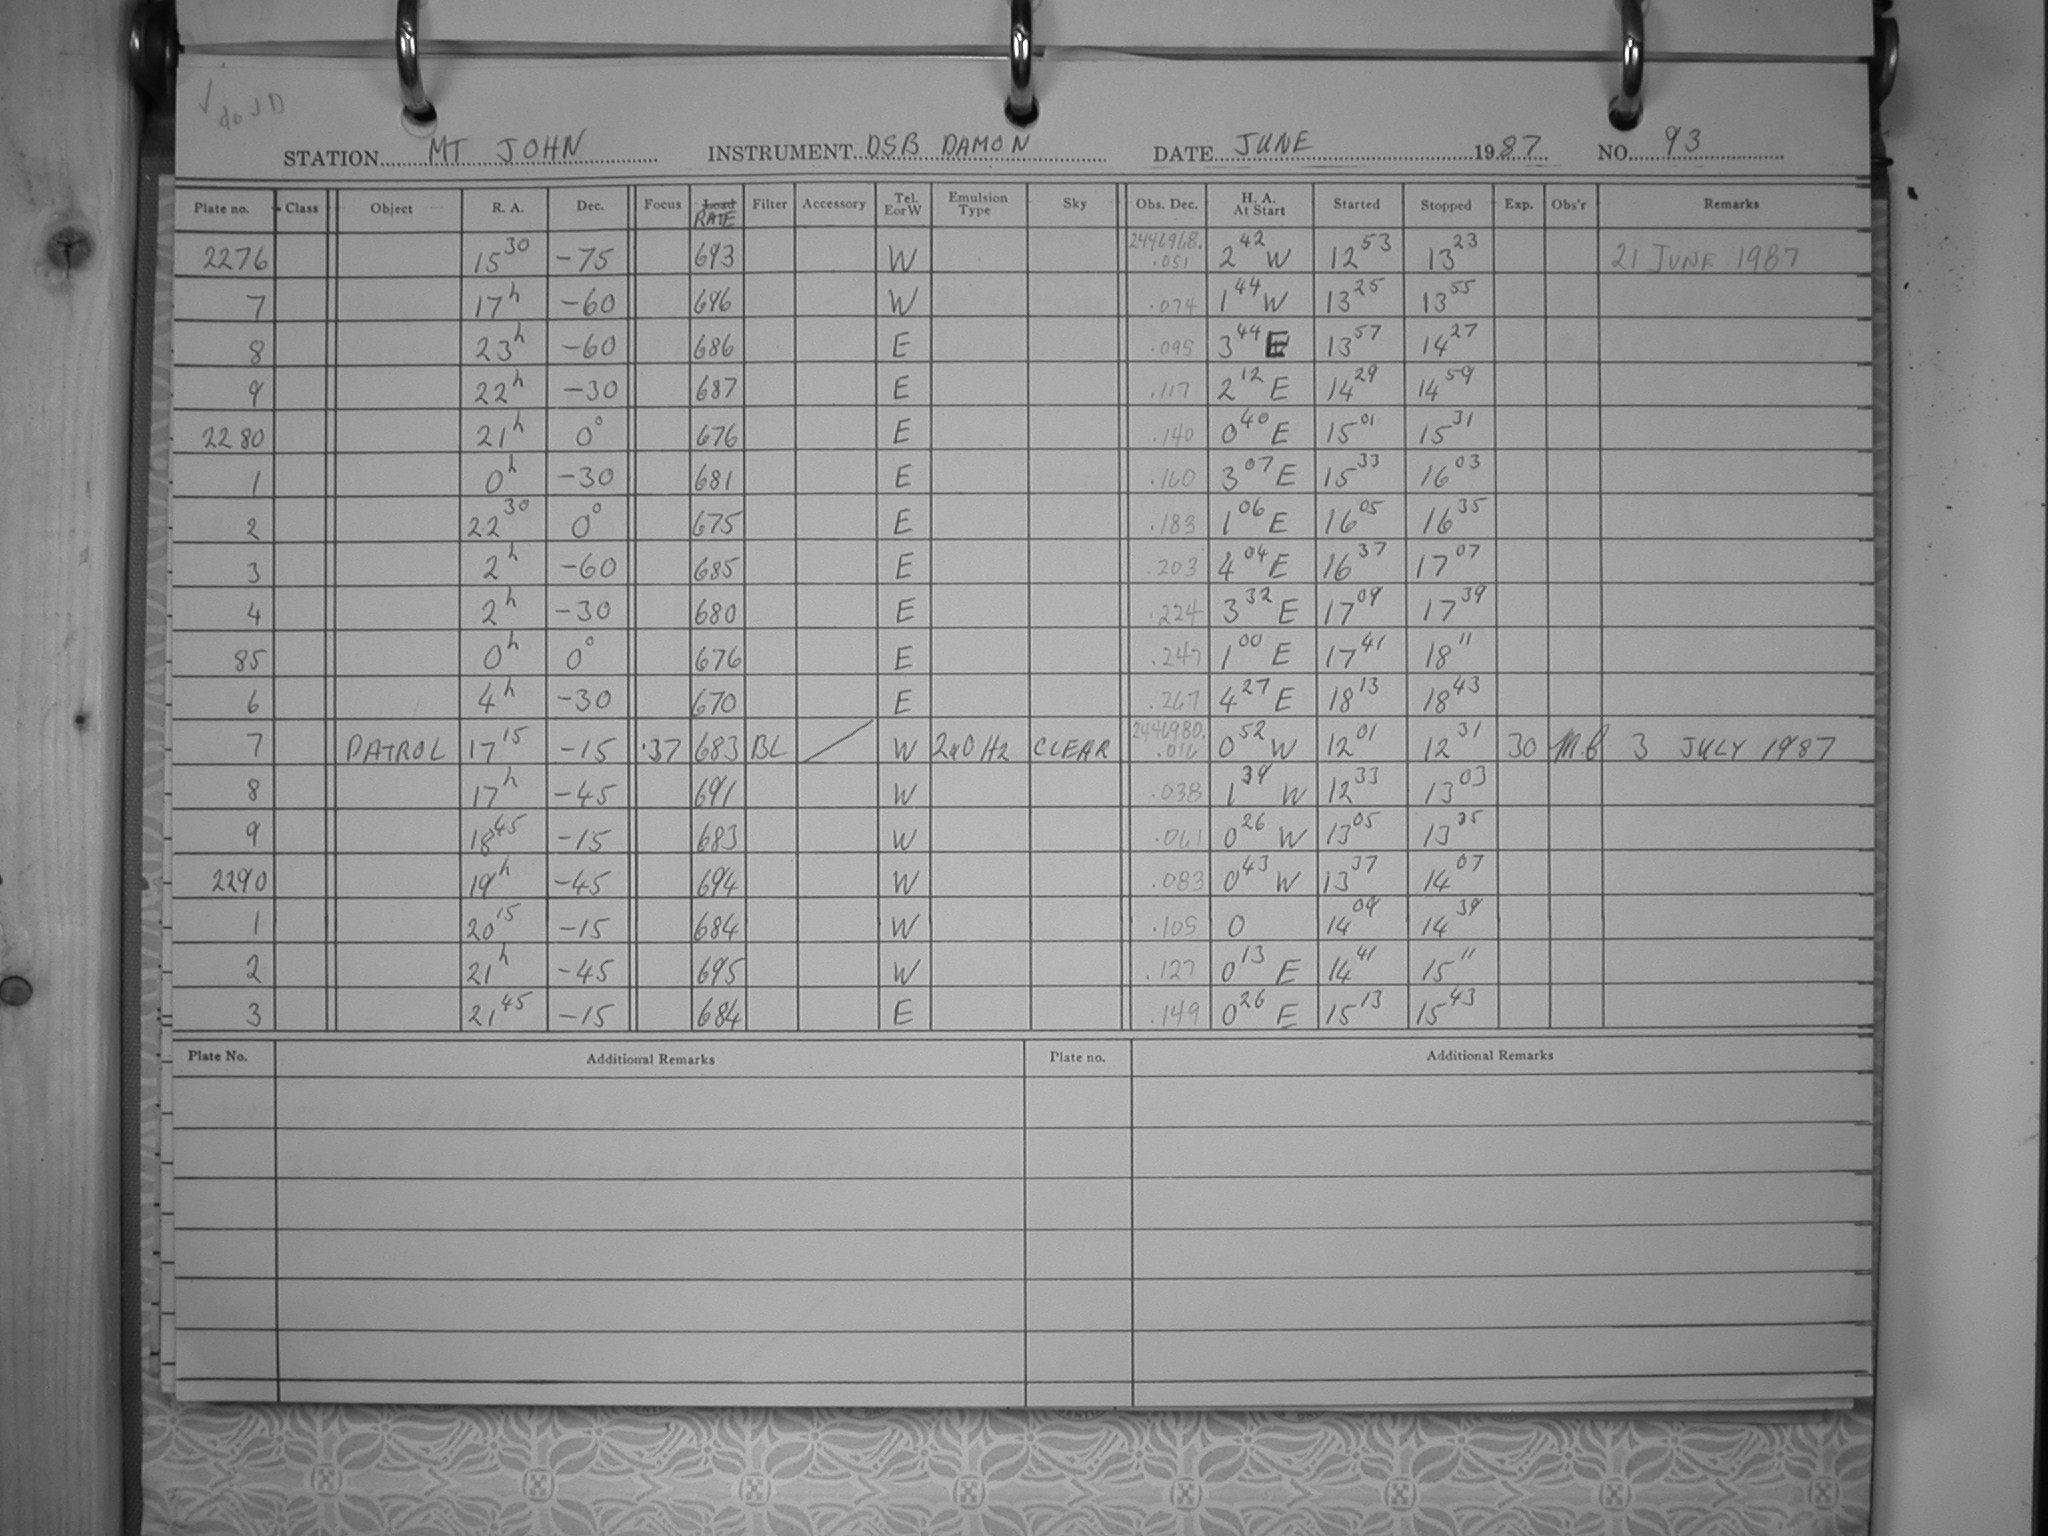 √ do JD
STATION MT JOHN INSTRUMENT DSB DAMON DATE JUNE 1987 NO. 93
Plate no. Class Object R. A. Dec. Focus Load RATE Filter Accessory Tel. E or W Emulsion Type Sky Obs. Dec. H. A. At Start Started Stopped Exp. Obs'r Remarks
2276 15 30 -75 693 W 2446968. .051 2 42 W 12 53 13 23 21 JUNE 1987
7 17 h -60 696 W .074 1 44 W 13 25 13 55
8 23 h -60 686 E .095 3 44 E 13 57 14 27
9 22 h -30 687 E .117 2 12 E 14 29 14 59
2280 21 h 0° 676 E .140 0 40 E 15 01 15 31
1 0 h -30 681 E .160 3 07 E 15 33 16 03
2 22 30 0° 675 E .183 1 06 E 16 05 16 35
3 2 h -60 685 E .203 4 04 E 16 37 17 07
4 2 h -30 680 E .224 3 32 E 17 09 17 39
85 0 h 0° 676 E .247 1 00 E 17 41 18 11
6 4 h -30 670 E .267 4 27 E 18 13 18 43
7 PATROL 17 15 -15 .37 683 BL / W 2aO H2 CLEAR 2446980. .016 0 52 W 12 01 12 31 30 3 JULY 1987
8 17 h -45 691 W .038 1 39 W 12 33 13 03
9 18 45 -15 683 W .061 0 26 W 13 05 13 35
2290 19 h -45 694 W .083 0 43 W 13 37 14 07
1 20 15 -15 684 W .105 0 14 09 14 39
2 21 h -45 695 W .127 0 13 E 14 41 15 11
3 21 45 -15 684 E .149 0 26 E 15 13 15 43
Plate No. Additional Remarks Plate no. Additional Remarks